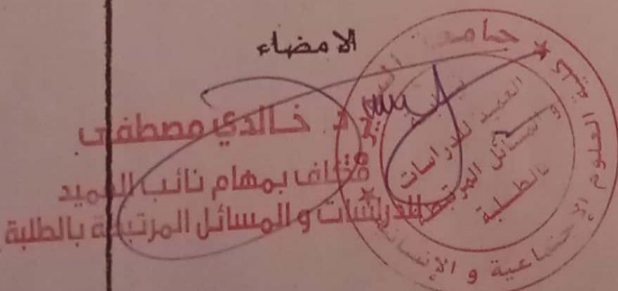 الامضاء
د. خالدي مصطفى
مكلف بمهام نائب العميد
للدراسات و المسائل المرتبطة بالطلبة
جامعة
كلية العلوم الإجتماعية و الإنسانية
نيابة
العميد للدراسات
و المسائل المرتبطة
بالطلبة